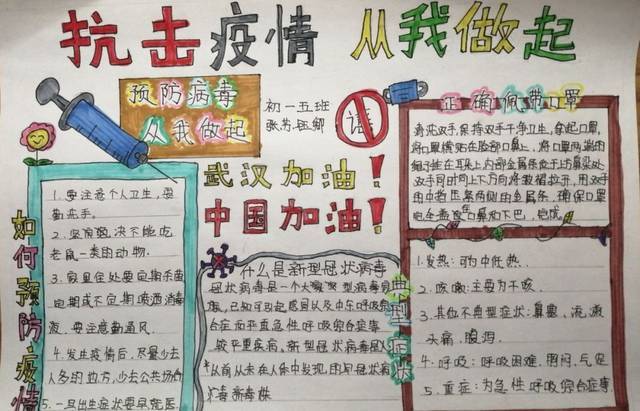 抗击疫情 从我做起
预防病毒
从我做起
初一五班
武汉加油！
中国加油！
如何预防疫情
1. 要注意个人卫生，要
勤洗手。
老鼠一类的动物.
3. 家里住处要定期杀菌
定期或不定期喷洒消毒
液，要注意勤通风.
4. 发生疫情后，尽量少去
人多的地方，少去公共场合
5. 一旦出生症状要早就医
什么是新型冠状病毒
冠状病毒是一个大型病毒
已知可引起感冒以及中东呼吸综
合症和严重急性呼吸综合症等
较严重疾病、新型冠状病毒
从前从未在人体中发现的冠状病
毒新毒株
正确佩带口罩
请洗双手，保持双手干净卫生，拿起口罩，
将口罩横贴在脸部口鼻上，将口罩两端的
绳子挂在耳朵上
双手同时向上下方向将皱褶拉开，用双手
的中指压紧两侧的金属条，确保口罩
完全覆盖口鼻和下巴，完成
典型症状
1. 发热：可为中低热.
2. 咳嗽：主要为干咳.
3. 其他不典型症状：鼻塞、流涕
头痛、腹泻.
4. 呼吸：呼吸困难、胸闷、气促
5. 重症：为急性呼吸综合症等